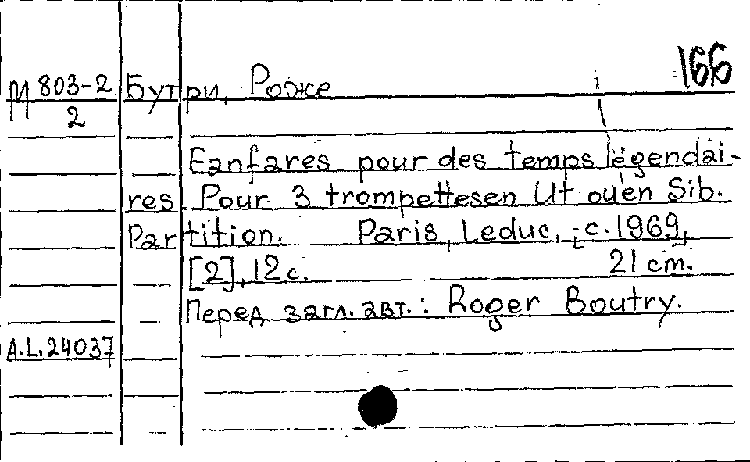 166
М 803-2
2
Бутри, Роже
Fanfares pour des temps légendai-
res. Pour 3 trompettes en Ut ou en Sib.
Partition. Paris, Leduc, c.1969,
[2], 12 с. 21 cm.
Перед загл. авт.: Roger Boutry.
A.L.24037